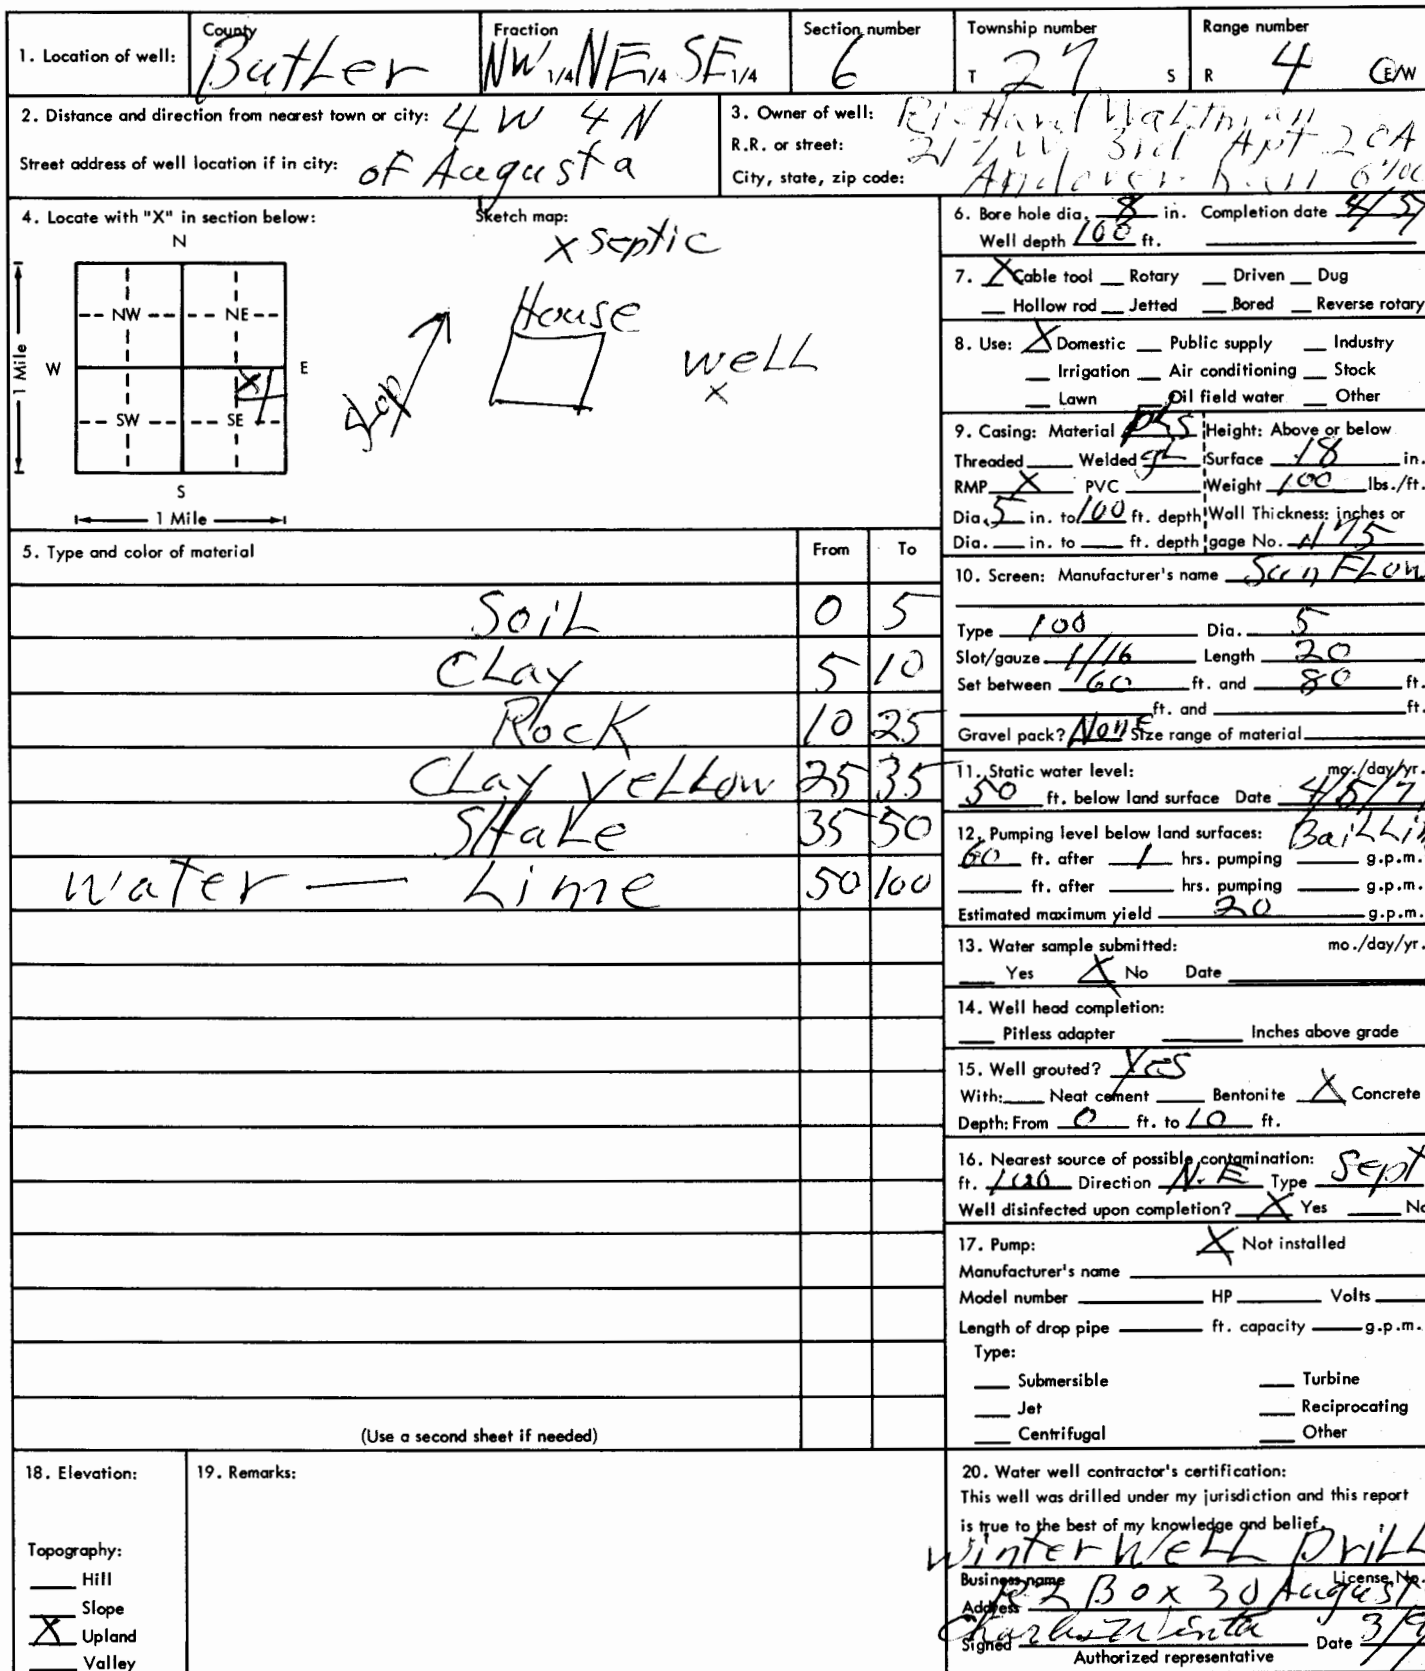 1. Location of well: County Butler Fraction NW 1/4 NE 1/4 SE 1/4 Section number 6 Township number T 27 S Range number R 4 E/W
2. Distance and direction from nearest town or city: 4 W 4 N
Street address of well location if in city: of Augusta
3. Owner of well: Richard Waltman
R.R. or street: 217 W 3rd Apt 20A
City, state, zip code: Andover Kan
4. Locate with "X" in section below:
N
NW NE
W E
X
SW SE
S
1 Mile
1 Mile
Sketch map:
X Septic
House
Slop
well
X
5. Type and color of material From To
Soil 0 5
Clay 5 10
Rock 10 25
Clay Yellow 25 35
Shale 35 50
Water — Lime 50 100
(Use a second sheet if needed)
6. Bore hole dia. 8 in. Completion date 4/5/
Well depth 100 ft.
7. X Cable tool Rotary Driven Dug
Hollow rod Jetted Bored Reverse rotary
8. Use: X Domestic Public supply Industry
Irrigation Air conditioning Stock
Lawn Oil field water Other
9. Casing: Material Height: Above or below
Threaded Welded Surface 18 in.
RMP X PVC Weight 100 lbs./ft.
Dia. 5 in. to 100 ft. depth Wall Thickness: inches or
Dia. in. to ft. depth gage No.
10. Screen: Manufacturer's name Sun Flow
Type 100 Dia. 5
Slot/gauze 1/16 Length 20
Set between 60 ft. and 80 ft.
ft. and ft.
Gravel pack? None Size range of material
11. Static water level: mo./day/yr.
50 ft. below land surface Date 4/5/7
12. Pumping level below land surfaces: Bailin
60 ft. after 1 hrs. pumping g.p.m.
ft. after hrs. pumping g.p.m.
Estimated maximum yield 20 g.p.m.
13. Water sample submitted: mo./day/yr.
Yes X No Date
14. Well head completion:
Pitless adapter Inches above grade
15. Well grouted? Yes
With: Neat cement Bentonite X Concrete
Depth: From 0 ft. to 10 ft.
16. Nearest source of possible contamination:
ft. 100 Direction N.E Type Sept
Well disinfected upon completion? X Yes No
17. Pump: X Not installed
Manufacturer's name
Model number HP Volts
Length of drop pipe ft. capacity g.p.m.
Type:
Submersible Turbine
Jet Reciprocating
Centrifugal Other
18. Elevation:
Topography:
Hill
Slope
X Upland
Valley
19. Remarks:
20. Water well contractor's certification:
This well was drilled under my jurisdiction and this report
is true to the best of my knowledge and belief.
Winter Well Drill
Business name License No.
Address R2 Box 30 August
Signed Charles Winter Date 3/9
Authorized representative